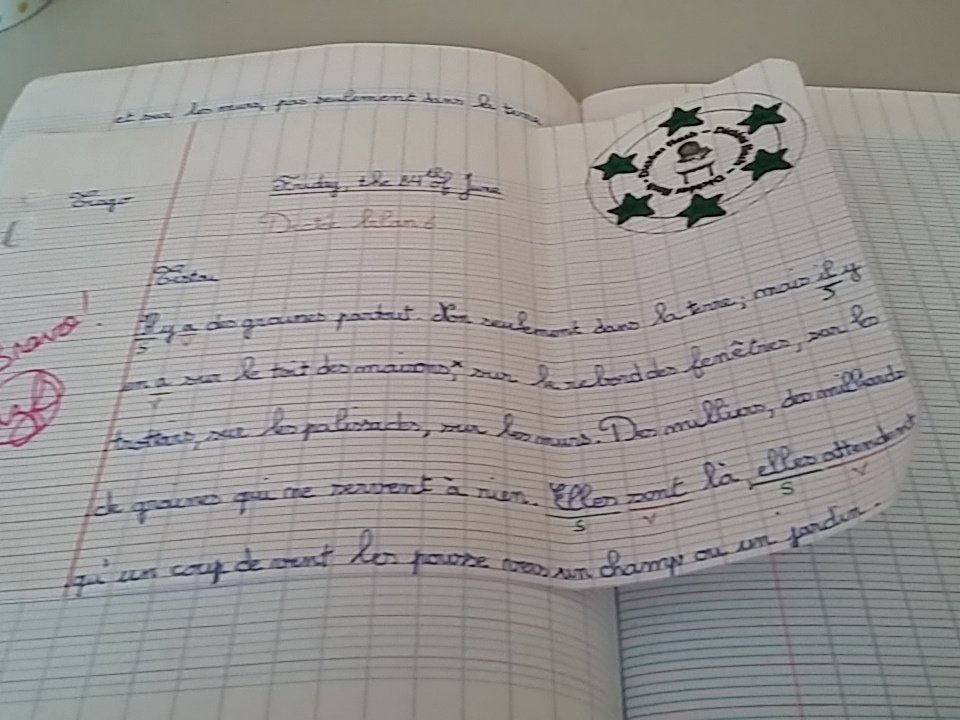 et sur les murs, pas seulement dans la terre
Friday, the 24th of June
Dictée
Bravo!
Tistou
Il y a des graines partout. Non seulement dans la terre, mais il y
en a sur le toit des maisons,* sur le rebord des fenêtres, sur les
trottoirs, sur les palissades, sur les murs. Des milliers, des milliards
de graines qui ne servent à rien. Elles sont là, elles attendent
qu'un coup de vent les pousse vers un champ ou un jardin.
S V S
V
S V S V